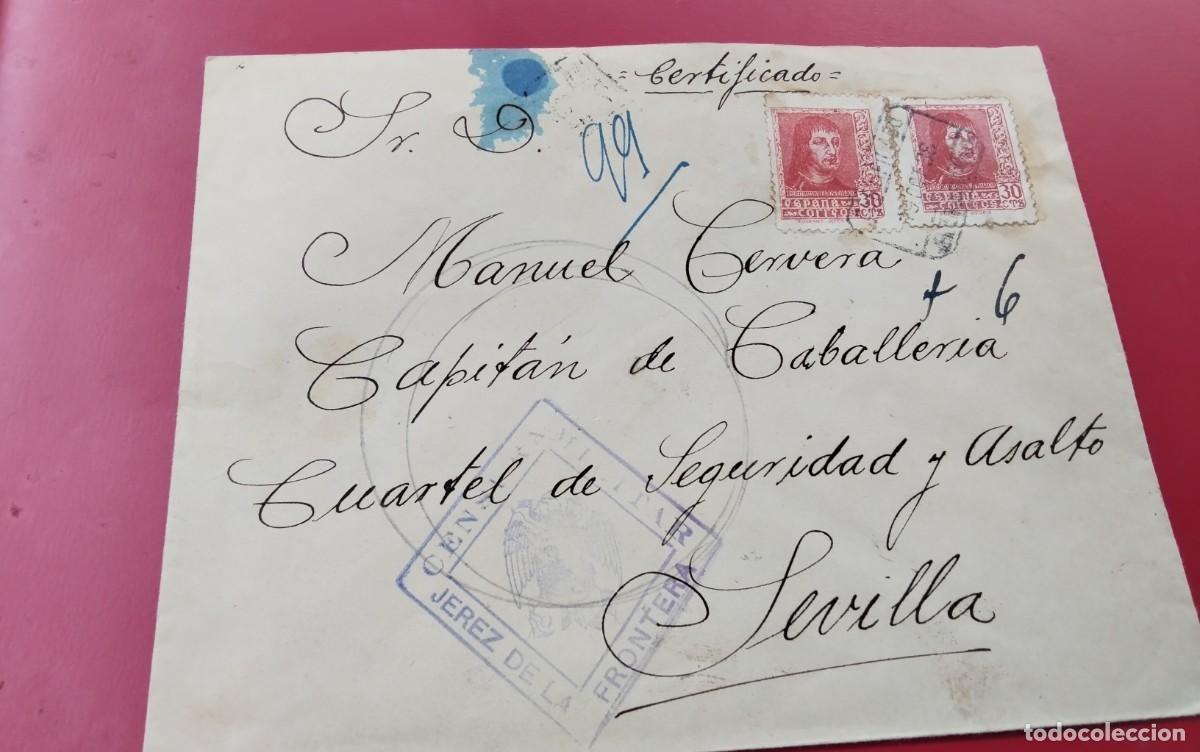 = Certificado =
Sr. D.
99
ESPAÑA 30
CORREOS CTS
30
CORREOS CTS
Manuel Cervera
+ 6
Capitán de Caballeria
Cuartel de Seguridad y Asalto
Sevilla
CENSURA MILITAR
JEREZ DE LA
FRONTERA
todocoleccion